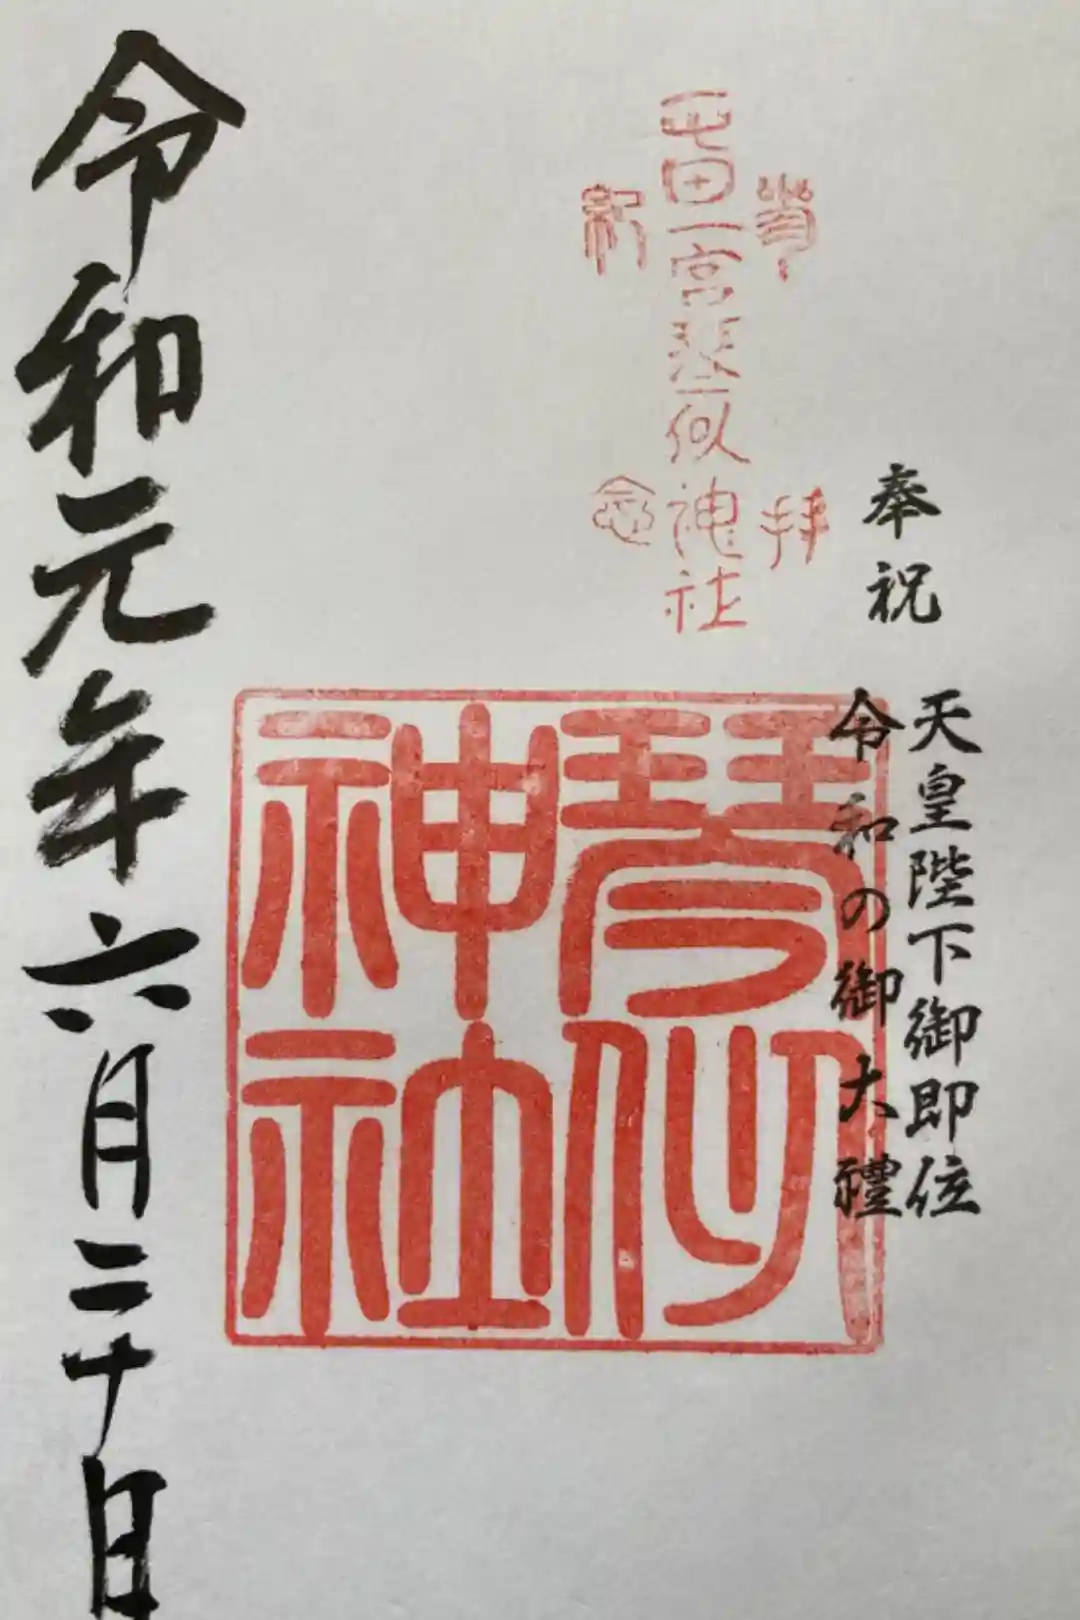 奉祝
天皇陛下御即位
令和の御大禮
參拝
屯田一宮琴似神社
記念
琴似
神社
令和元年六月二十日